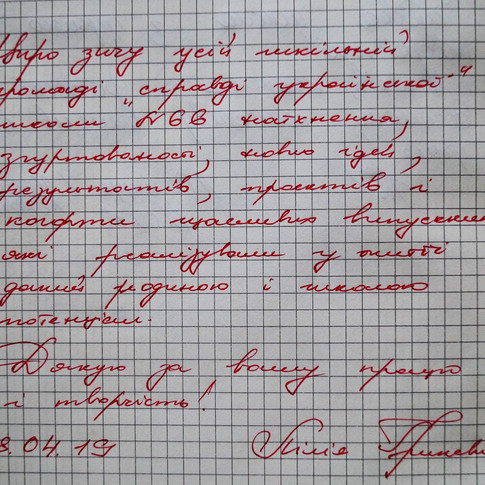 Щиро зичу усій шкільній
громаді „справді української“
школи №66 натхнення,
згуртованості, нових ідей,
результатів, проєктів і
когорти щасливих випускників
які реалізували у житті
даний родиною і школою
потенціал.
Дякую за вашу працю
і творчість!
8.04.19 Лілія Гриневич